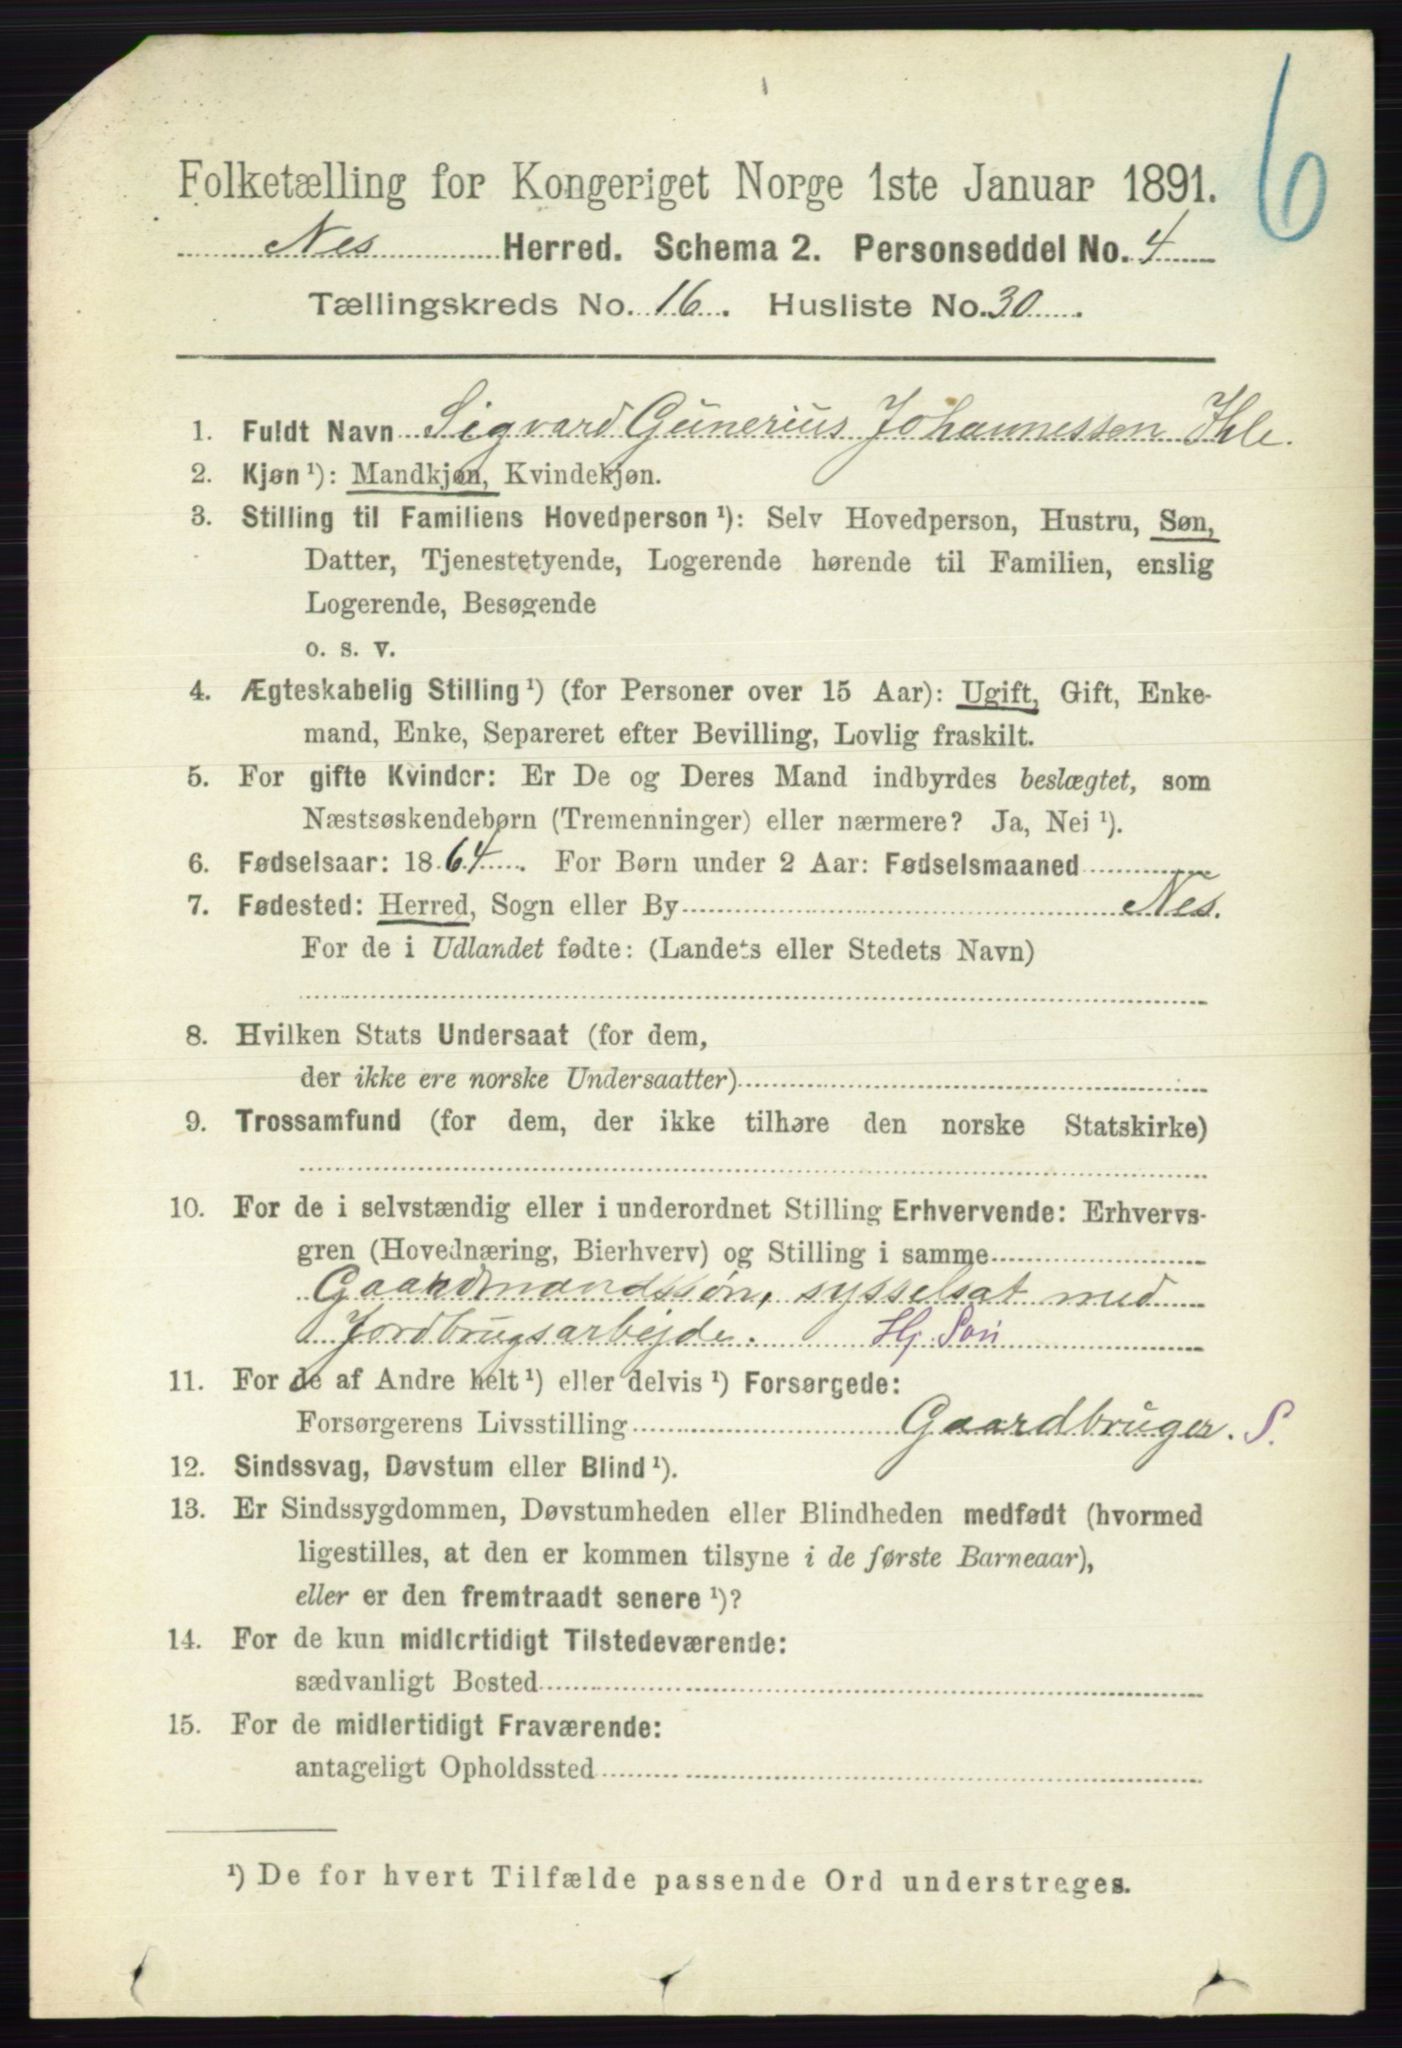 6
Folketælling for Kongeriget Norge 1ste Januar 1891.
Nes Herred. Schema 2. Personseddel No. 4
Tællingskreds No. 16. Husliste No. 30.
1. Fuldt Navn Sigvard Gunerius Johannessen Ihle.
2. Kjøn¹): Mandkjøn, Kvindekjøn.
3. Stilling til Familiens Hovedperson¹): Selv Hovedperson, Hustru, Søn,
Datter, Tjenestetyende, Logerende hørende til Familien, enslig
Logerende, Besøgende
o. s. v.
4. Ægteskabelig Stilling¹) (for Personer over 15 Aar): Ugift, Gift, Enke-
mand, Enke, Separeret efter Bevilling, Lovlig fraskilt.
5. For gifte Kvinder: Er De og Deres Mand indbyrdes beslægtet, som
Næstsøskendebørn (Tremenninger) eller nærmere? Ja, Nei¹).
6. Fødselsaar: 1864. For Børn under 2 Aar: Fødselsmaaned
7. Fødested: Herred, Sogn eller By Nes.
For de i Udlandet fødte: (Landets eller Stedets Navn)
8. Hvilken Stats Undersaat (for dem,
der ikke ere norske Undersaatter)
9. Trossamfund (for dem, der ikke tilhøre den norske Statskirke)
10. For de i selvstændig eller i underordnet Stilling Erhvervende: Erhvervs-
gren (Hovednæring, Bierhverv) og Stilling i samme
Gaardmandssøn, sysselsat med
Jordbrugsarbejde. Hj Søn
11. For de af Andre helt¹) eller delvis¹) Forsørgede:
Forsørgerens Livsstilling Gaardbruger. S.
12. Sindssvag, Døvstum eller Blind¹).
13. Er Sindssygdommen, Døvstumheden eller Blindheden medfødt (hvormed
ligestilles, at den er kommen tilsyne i de første Barneaar),
eller er den fremtraadt senere¹)?
14. For de kun midlertidigt Tilstedeværende:
sædvanligt Bosted
15. For de midlertidigt Fraværende:
antageligt Opholdssted
¹) De for hvert Tilfælde passende Ord understreges.